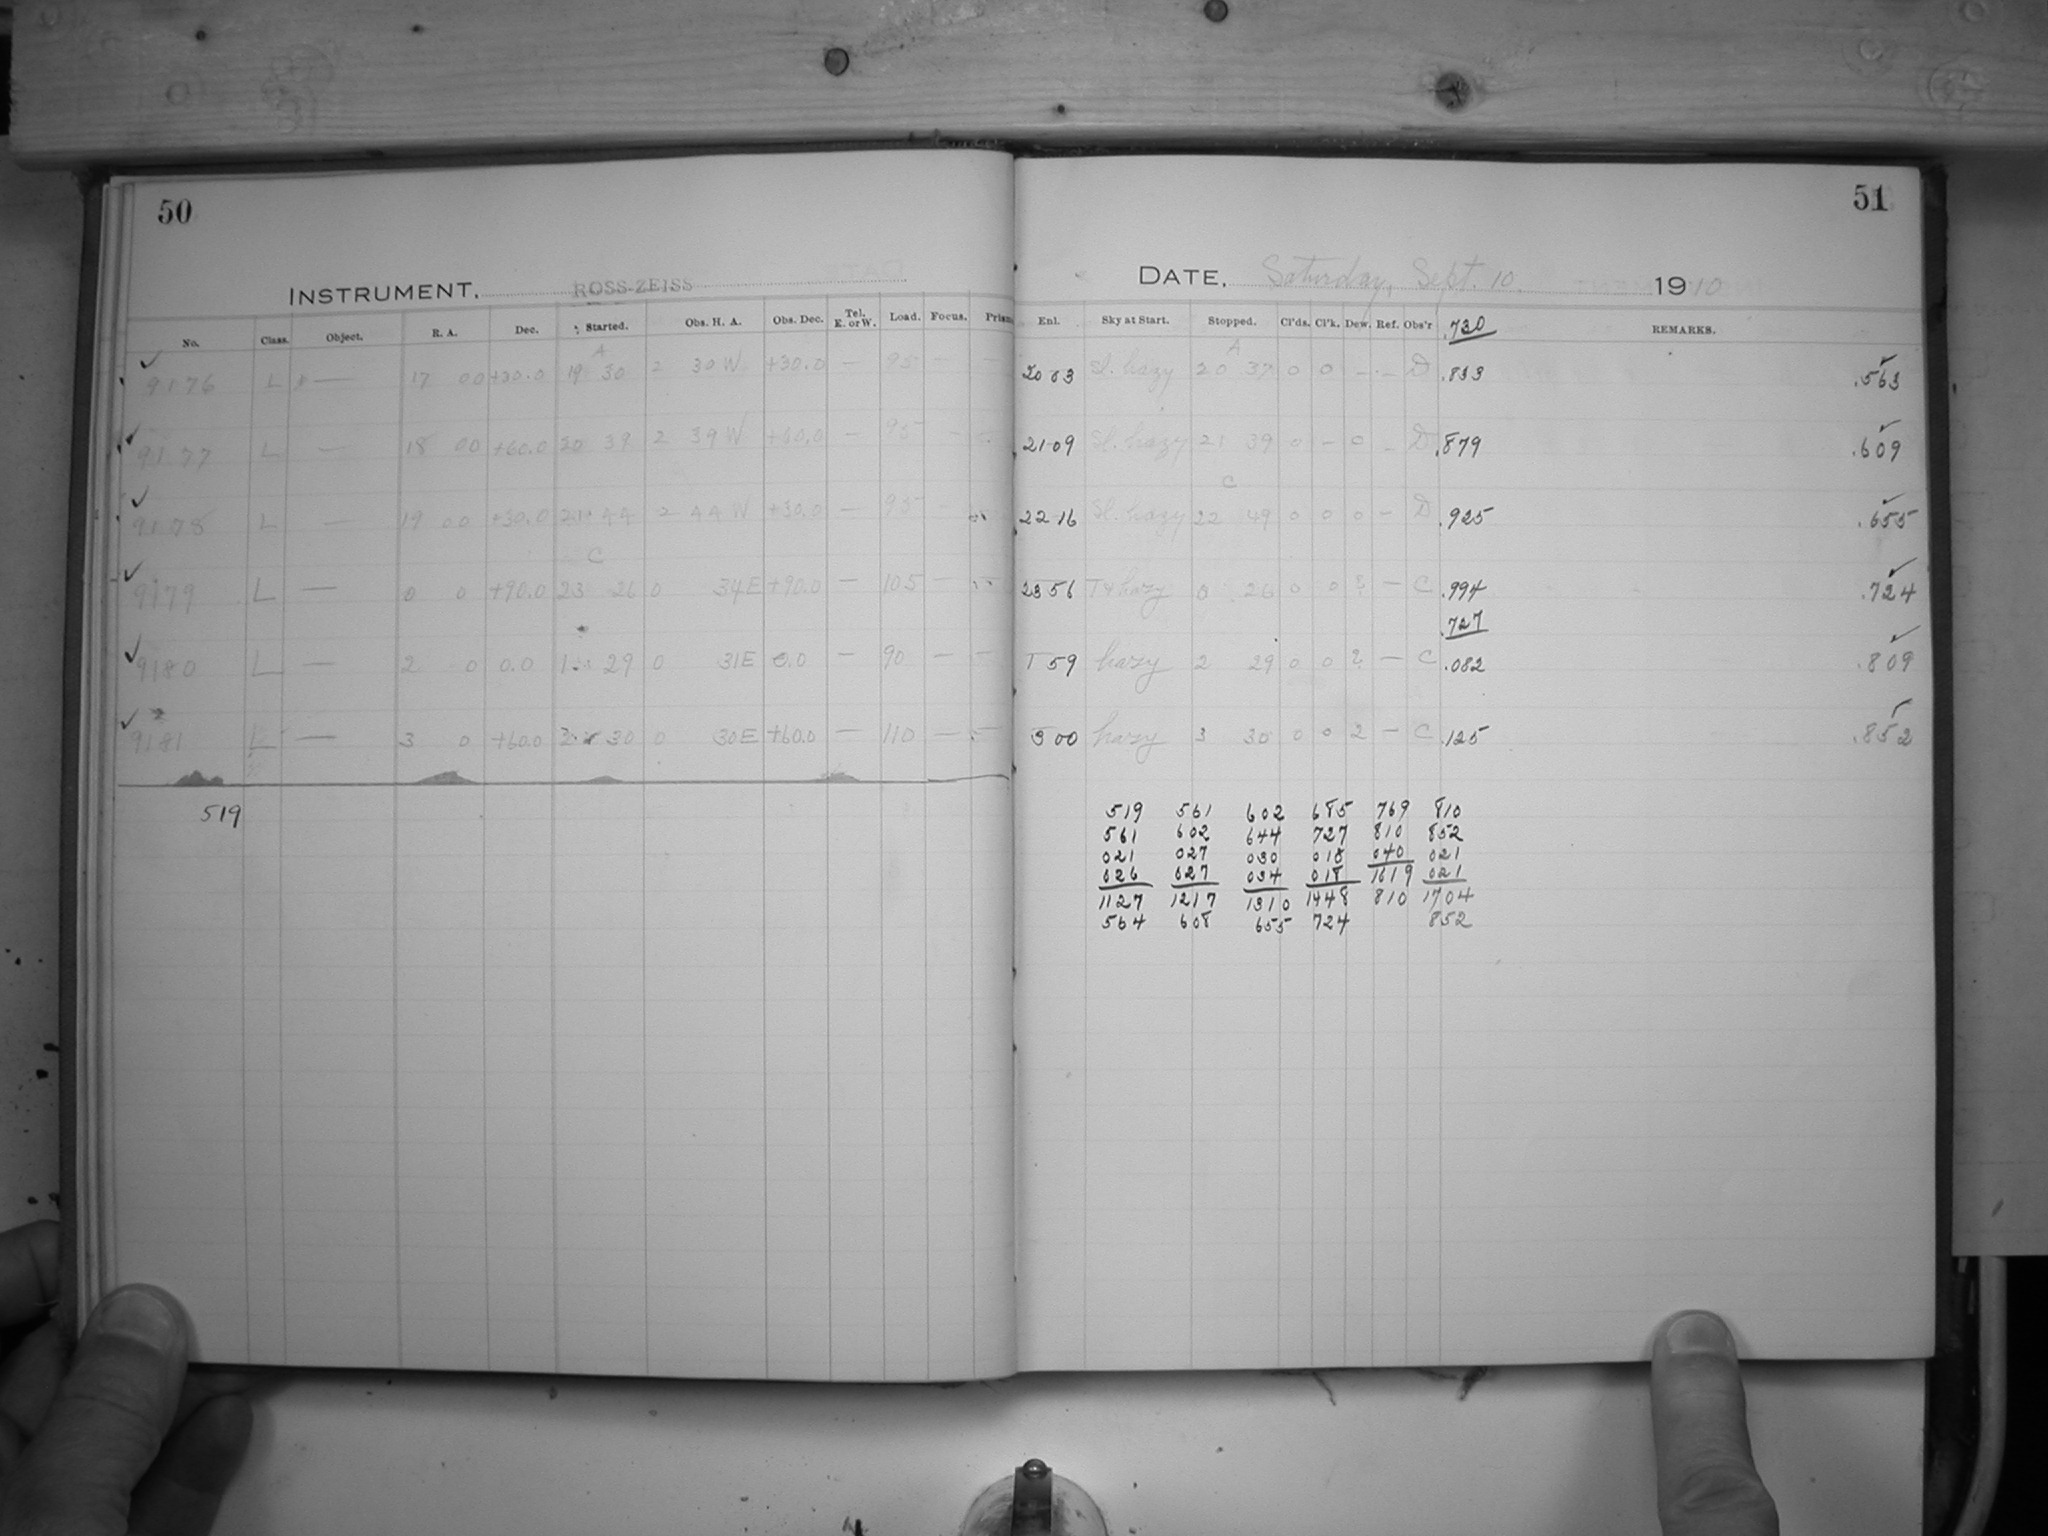 50
INSTRUMENT, ROSS-ZEISS
No. Class. Object. R. A. Dec. Started. Obs. H. A. Obs. Dec. Tel. E. or W. Load. Focus. Prism
9176 L — 17 00 +30.0 19 30 2 30 W +30.0 — 95 — —
9177 L — 18 00 +60.0 20 39 2 39 W +60.0 — 95 —
9178 L 19 00 +30.0 21 44 2 44 W +30.0 — 95 —
9179 L — 0 0 +90.0 23 26 0 34 E +90.0 — 105 —
9180 L — 2 0 0.0 1 29 0 31 E 0.0 — 90 — —
9181 L — 3 0 +60.0 2 30 0 30 E +60.0 — 110 — —
519
51
DATE, Saturday, Sept. 10. 1910
Enl. Sky at Start. Stopped. Cl'ds. Cl'k. Dew. Ref. Obs'r .730 REMARKS.
20 03 Sl. hazy 20 37 0 0 — — D .833 .563
21 09 Sl. hazy 21 39 0 — 0 — D .879 .609
22 16 Sl. hazy 22 49 0 0 0 — D .925 .655
23 56 hazy 0 26 0 0 2 — C .994 .724
.727
1 59 hazy 2 29 0 0 2 — C .082 .809
3 00 hazy 3 30 0 0 2 — C .125 .852
519 561 602 685 769 810
561 602 644 727 810 852
021 027 030 018 040 021
026 027 034 018 1619 021
1127 1217 1310 1448 810 1704
564 608 655 724 852